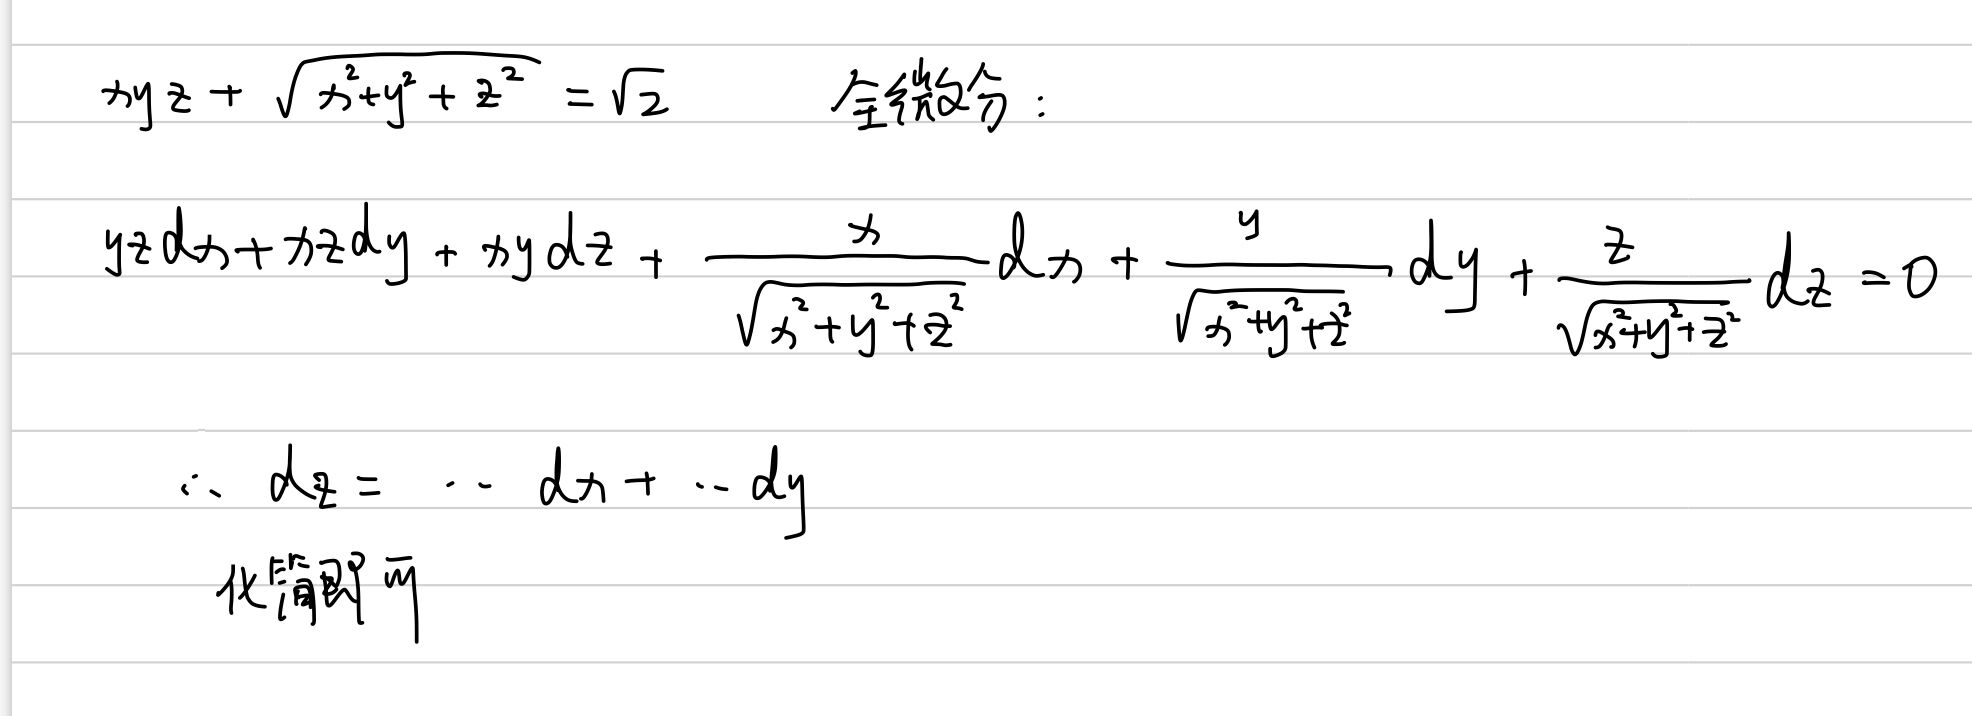 xyz + √(x²+y²+z²) = √2 全微分:
yzdx + xzdy + xydz + x/√(x²+y²+z²) dx + y/√(x²+y²+z²) dy + z/√(x²+y²+z²) dz = 0
∴ dz = ‥ dx + ‥ dy
化简即可